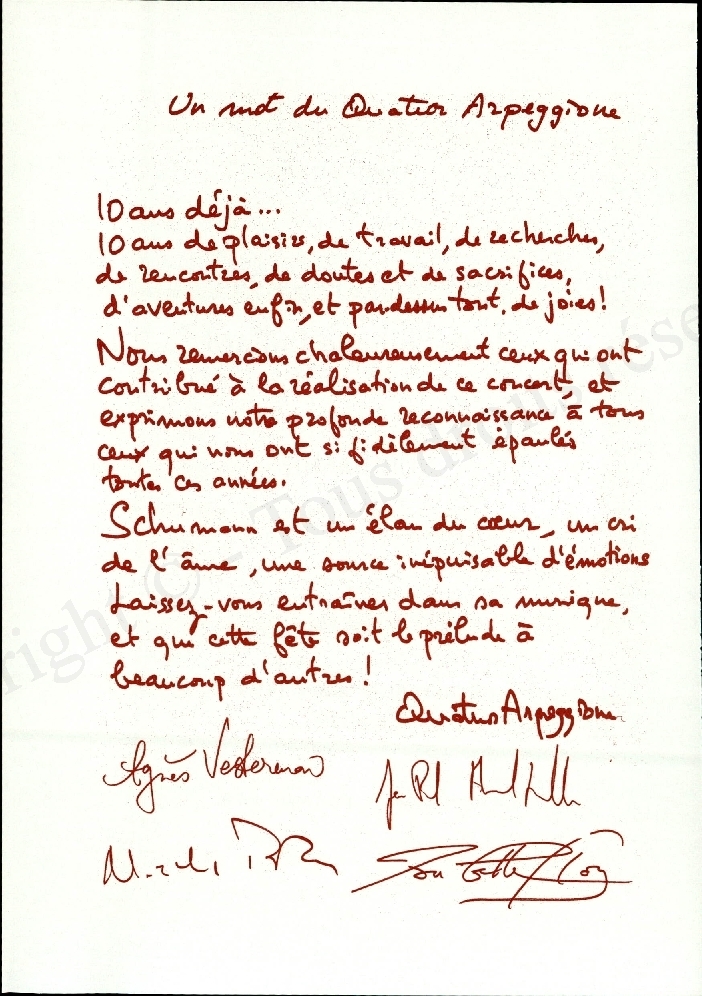 Un mot du Quatuor Arpeggione
10 ans déjà...
10 ans de plaisirs, de travail, de recherches,
de rencontres, de doutes et de sacrifices,
d'aventures enfin, et par dessus tout, de joies !
Nous remercions chaleureusement ceux qui ont
contribué à la réalisation de ce concert, et
exprimons notre profonde reconnaissance à tous
ceux qui nous ont si fidèlement épaulés
toutes ces années.
Schumann est un élan du cœur, un cri
de l'âme, une source inépuisable d'émotions
Laissez-vous entraîner dans sa musique,
et que cette fête soit le prélude à
beaucoup d'autres !
Quatuor Arpeggione
Agnès Vesterman
right © - Tous droits rése